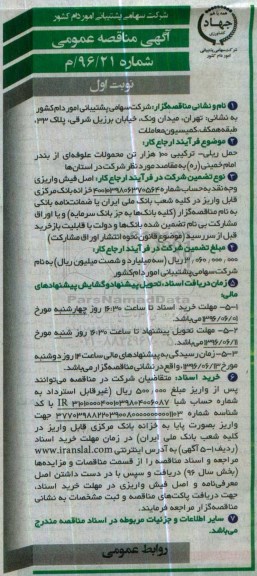 جهاد
شرکت سهامی پشتیبانی امور دام کشور
آگهی مناقصه عمومی
شماره ۹۶/۲۱/م
نوبت اول
۱ نام و نشانی مناقصه‌گزار: شرکت سهامی پشتیبانی امور دام کشور
به نشانی: تهران، میدان ونک، خیابان برزیل شرقی، پلاک ۳۳،
طبقه همکف، کمیسیون معاملات
۲ موضوع فرآیند ارجاع کار:
حمل ریلی- ترکیبی ۱۰۰ هزار تن محمولات علوفه‌ای از بندر
امام خمینی (ره) به مقاصد مورد نظر شرکت در استان‌ها
۳ نوع تضمین شرکت در فرآیند ارجاع کار: اصل فیش واریزی
وجه نقد به حساب شماره خزانه بانک مرکزی
قابل واریز در کلیه شعب بانک ملی ایران یا ضمانت‌نامه بانکی
به نام مناقصه‌گزار (کلیه بانک‌ها به جز بانک سرمایه) و یا اوراق
مشارکت بی نام تضمین شده بانک‌ها و دولت با قابلیت بازخرید
قبل از سررسید (موضوع قانون نحوه انتشار اوراق مشارکت)
۴ مبلغ تضمین شرکت در فرآیند ارجاع کار:
۳/۰۶۰/۰۰۰/۰۰۰ ریال (سه میلیارد و شصت میلیون ریال) به نام
شرکت سهامی پشتیبانی امور دام کشور
۵ زمان دریافت اسناد، تحویل پیشنهاد و گشایش پیشنهادهای
مالی:
۵-۱- مهلت خرید اسناد تا ساعت ۱۶:۳۰ روز چهارشنبه مورخ
۱۳۹۶/۰۶/۰۱ می‌باشد.
۵-۲- مهلت تحویل پیشنهاد تا ساعت ۱۶:۳۰ روز شنبه مورخ
۱۳۹۶/۰۶/۱۱ می‌باشد.
۵-۳- زمان رسیدگی به پیشنهادهای مالی ساعت ۱۴ روز دوشنبه
مورخ ۱۳۹۶/۰۶/۱۳، واقع در نشانی مناقصه‌گزار می‌باشد.
۶ خرید اسناد: متقاضیان شرکت در مناقصه می‌توانند
پس از واریز مبلغ ۵۰۰/۰۰۰ ریال (غیرقابل استرداد به
شماره حساب شبا با کد
شناسه شماره
واریز بصورت پایا به خزانه بانک مرکزی قابل واریز در
کلیه شعب بانک ملی ایران) در زمان مهلت خرید اسناد
(ردیف ۱-۵ آگهی) به آدرس اینترنتی www.iranslal.com
مراجعه و اسناد مناقصه را از قسمت مناقصات و مزایده‌ها
(بخش سال ۹۶) دریافت و سپس با در دست داشتن اصل
معرفی‌نامه و اصل فیش واریزی در مهلت خرید اسناد
جهت دریافت پاکت‌های مناقصه و ثبت مشخصات به نشانی
مناقصه‌گزار مراجعه فرمایند.
۷ سایر اطلاعات و جزئیات مربوطه در اسناد مناقصه مندرج
می‌باشد.
روابط عمومی